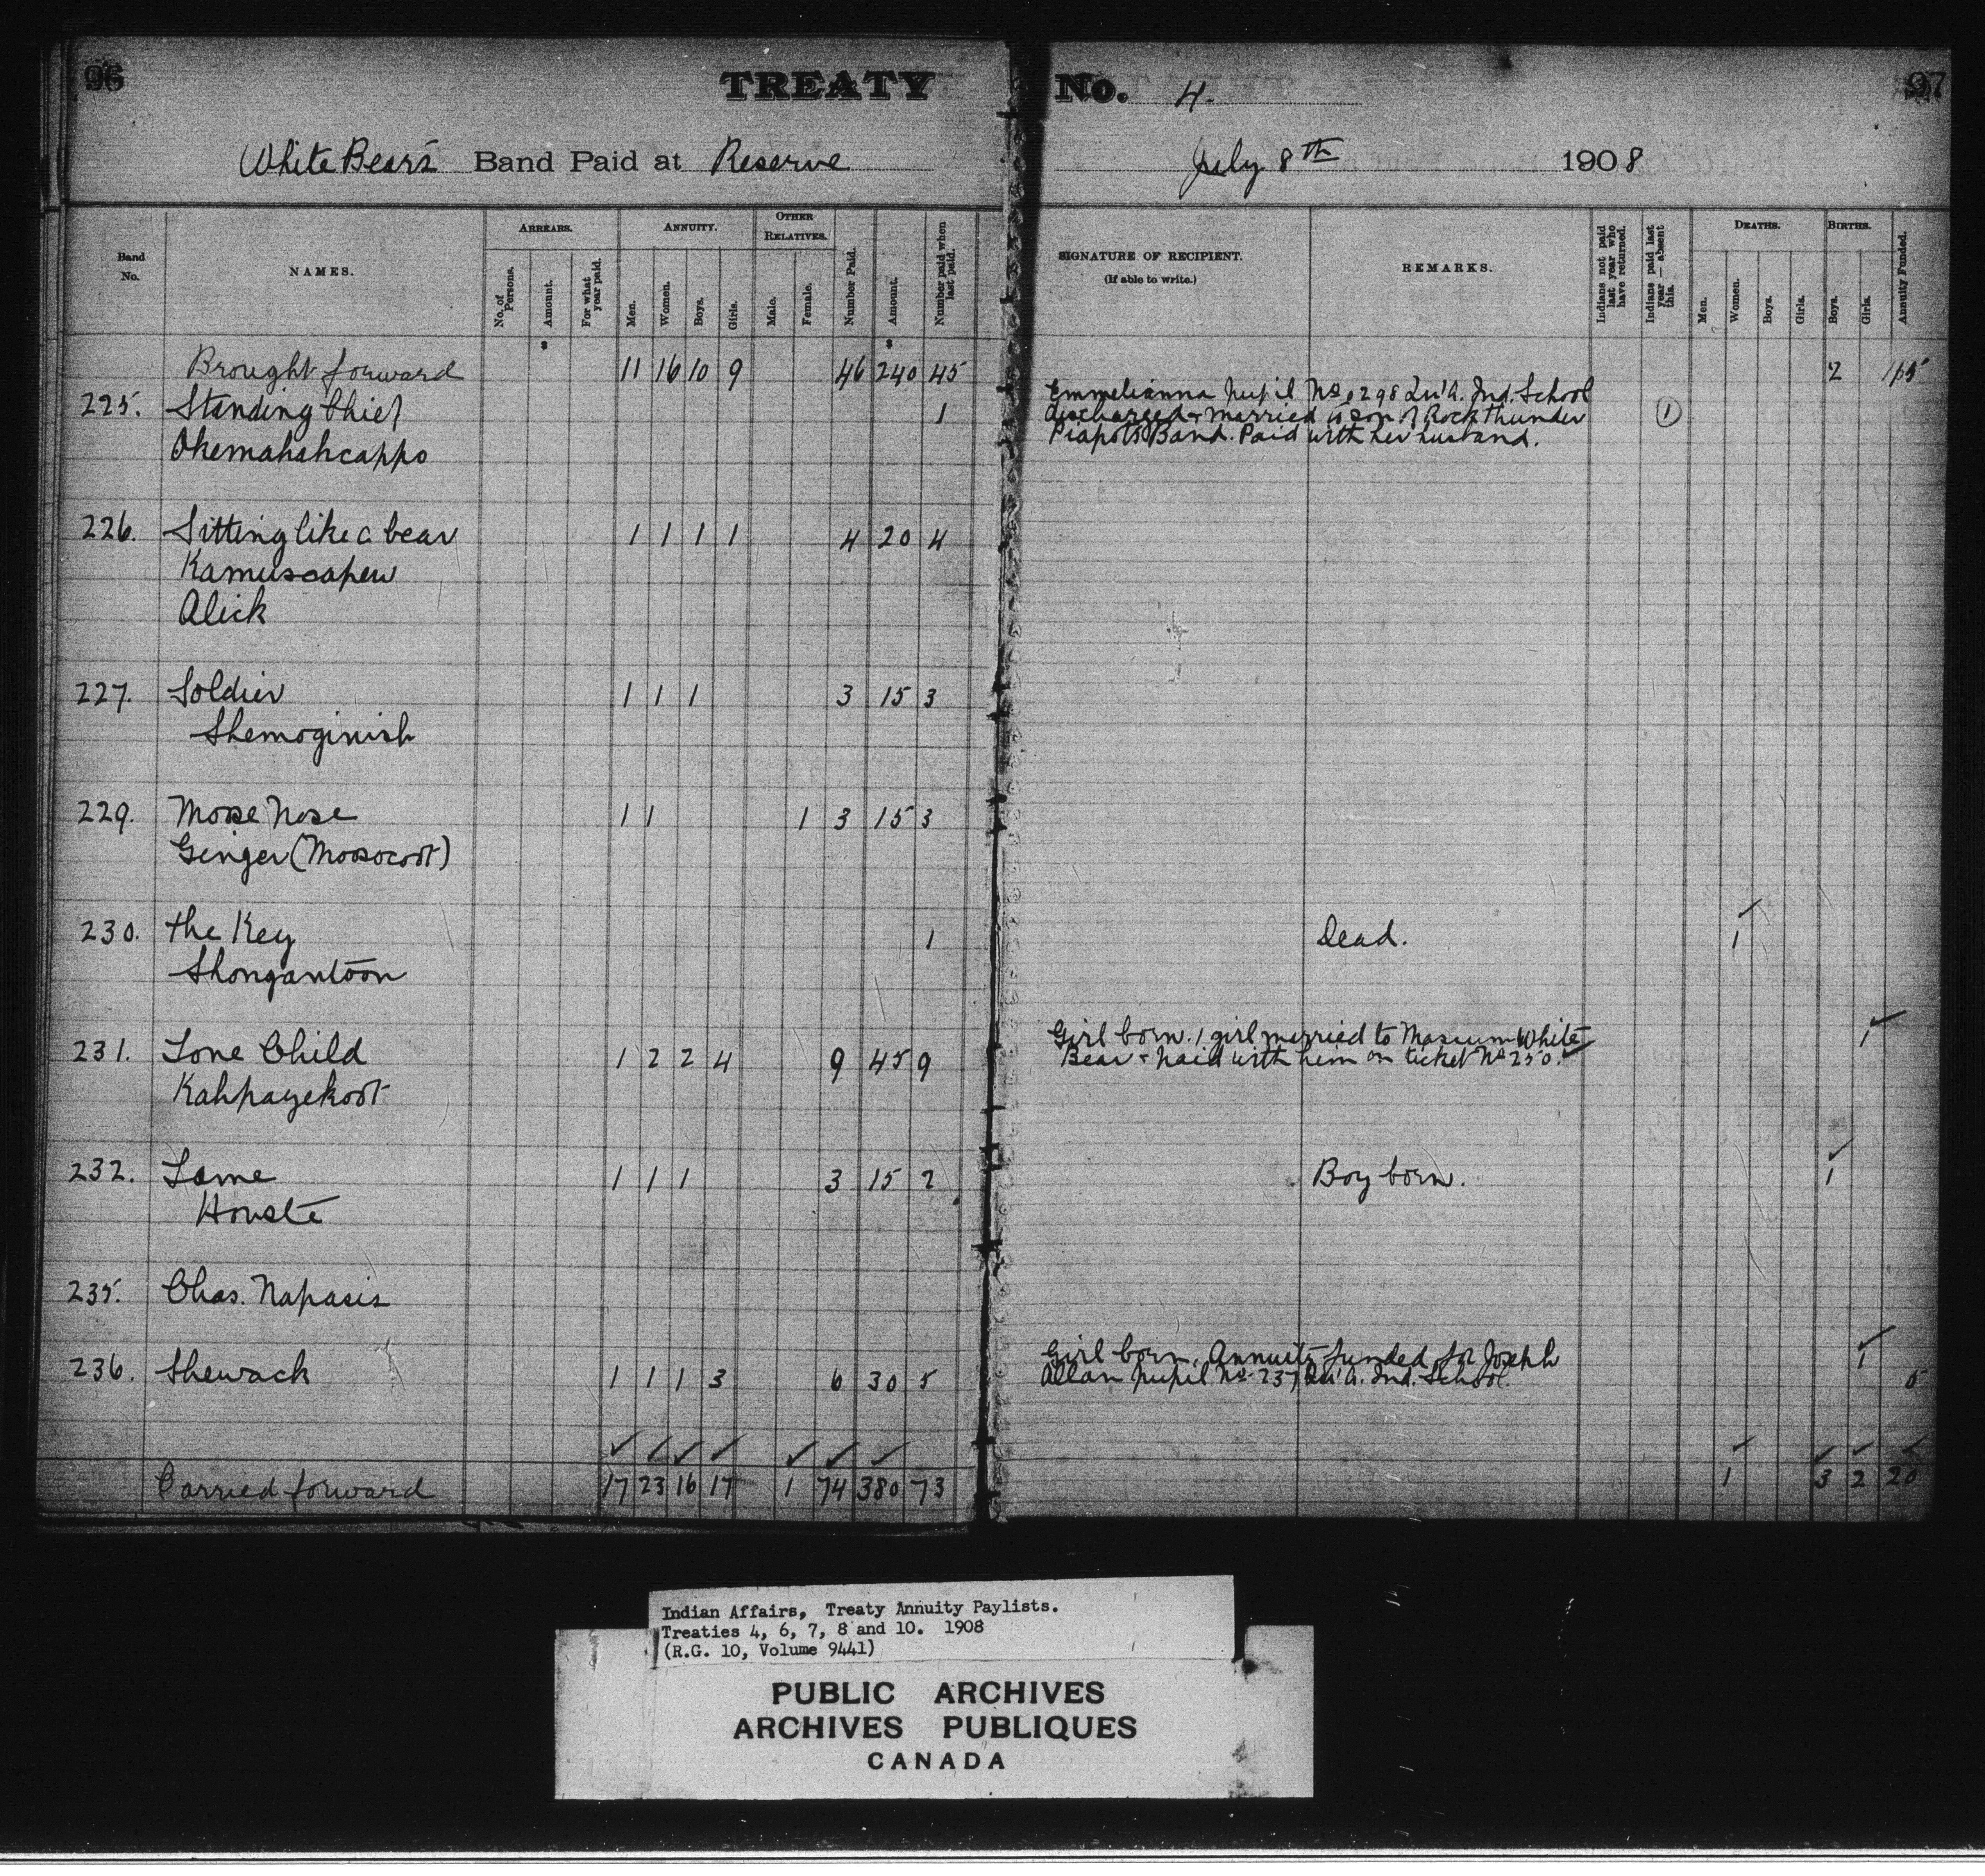 96
TREATY No. 4.
97
White Bear's Band Paid at Reserve July 8th 1908
Band No.
NAMES.
ARREARS.
No. of Persons.
Amount.
For what year paid.
ANNUITY.
Men.
Women.
Boys.
Girls.
OTHER RELATIVES.
Male.
Female.
Number Paid.
Amount.
Number paid when last paid.
SIGNATURE OF RECIPIENT.
(If able to write.)
REMARKS.
Indians not paid last year who have returned.
Indians paid last year — absent this.
DEATHS.
Men.
Women.
Boys.
Girls.
BIRTHS.
Boys.
Girls.
Annuity Funded.
Brought forward 11 16 10 9 46 240 45 2 15
225. Standing Chief 1 1
Okemahshcappo
Emmelianna Pupil No. 0298 Qu'A. Ind. School
discharged & married to son of Rock Thunder
Piapot's Band. Paid with her husband.
226. Sitting like a bear 1 1 1 1 4 20 4
Kamuscapew
Alick
227. Soldier 1 1 1 3 15 3
Shemoginish
229. Moose Nose 1 1 1 3 15 3
Ginger (Moosocoot)
230. The Key 1 Dead. 1
Shongantoon
231. Lone Child 1 2 2 4 9 45 9
Kahpayekoot
Girl born. 1 girl married to Masium White 1
Bear & paid with him on ticket No 250.
232. Lame 1 1 1 3 15 2 Boy born. 1
Houste
235. Chas. Napasis
236. Shewack 1 1 1 3 6 30 5
Girl born. Annuity funded for Joseph 1
Allan pupil No 237 Qu'A. Ind. School. 5
Carried forward 17 23 16 17 1 74 380 73 1 3 2 20
Indian Affairs, Treaty Annuity Paylists.
Treaties 4, 6, 7, 8 and 10. 1908
(R.G. 10, Volume 9441)
PUBLIC ARCHIVES
ARCHIVES PUBLIQUES
CANADA